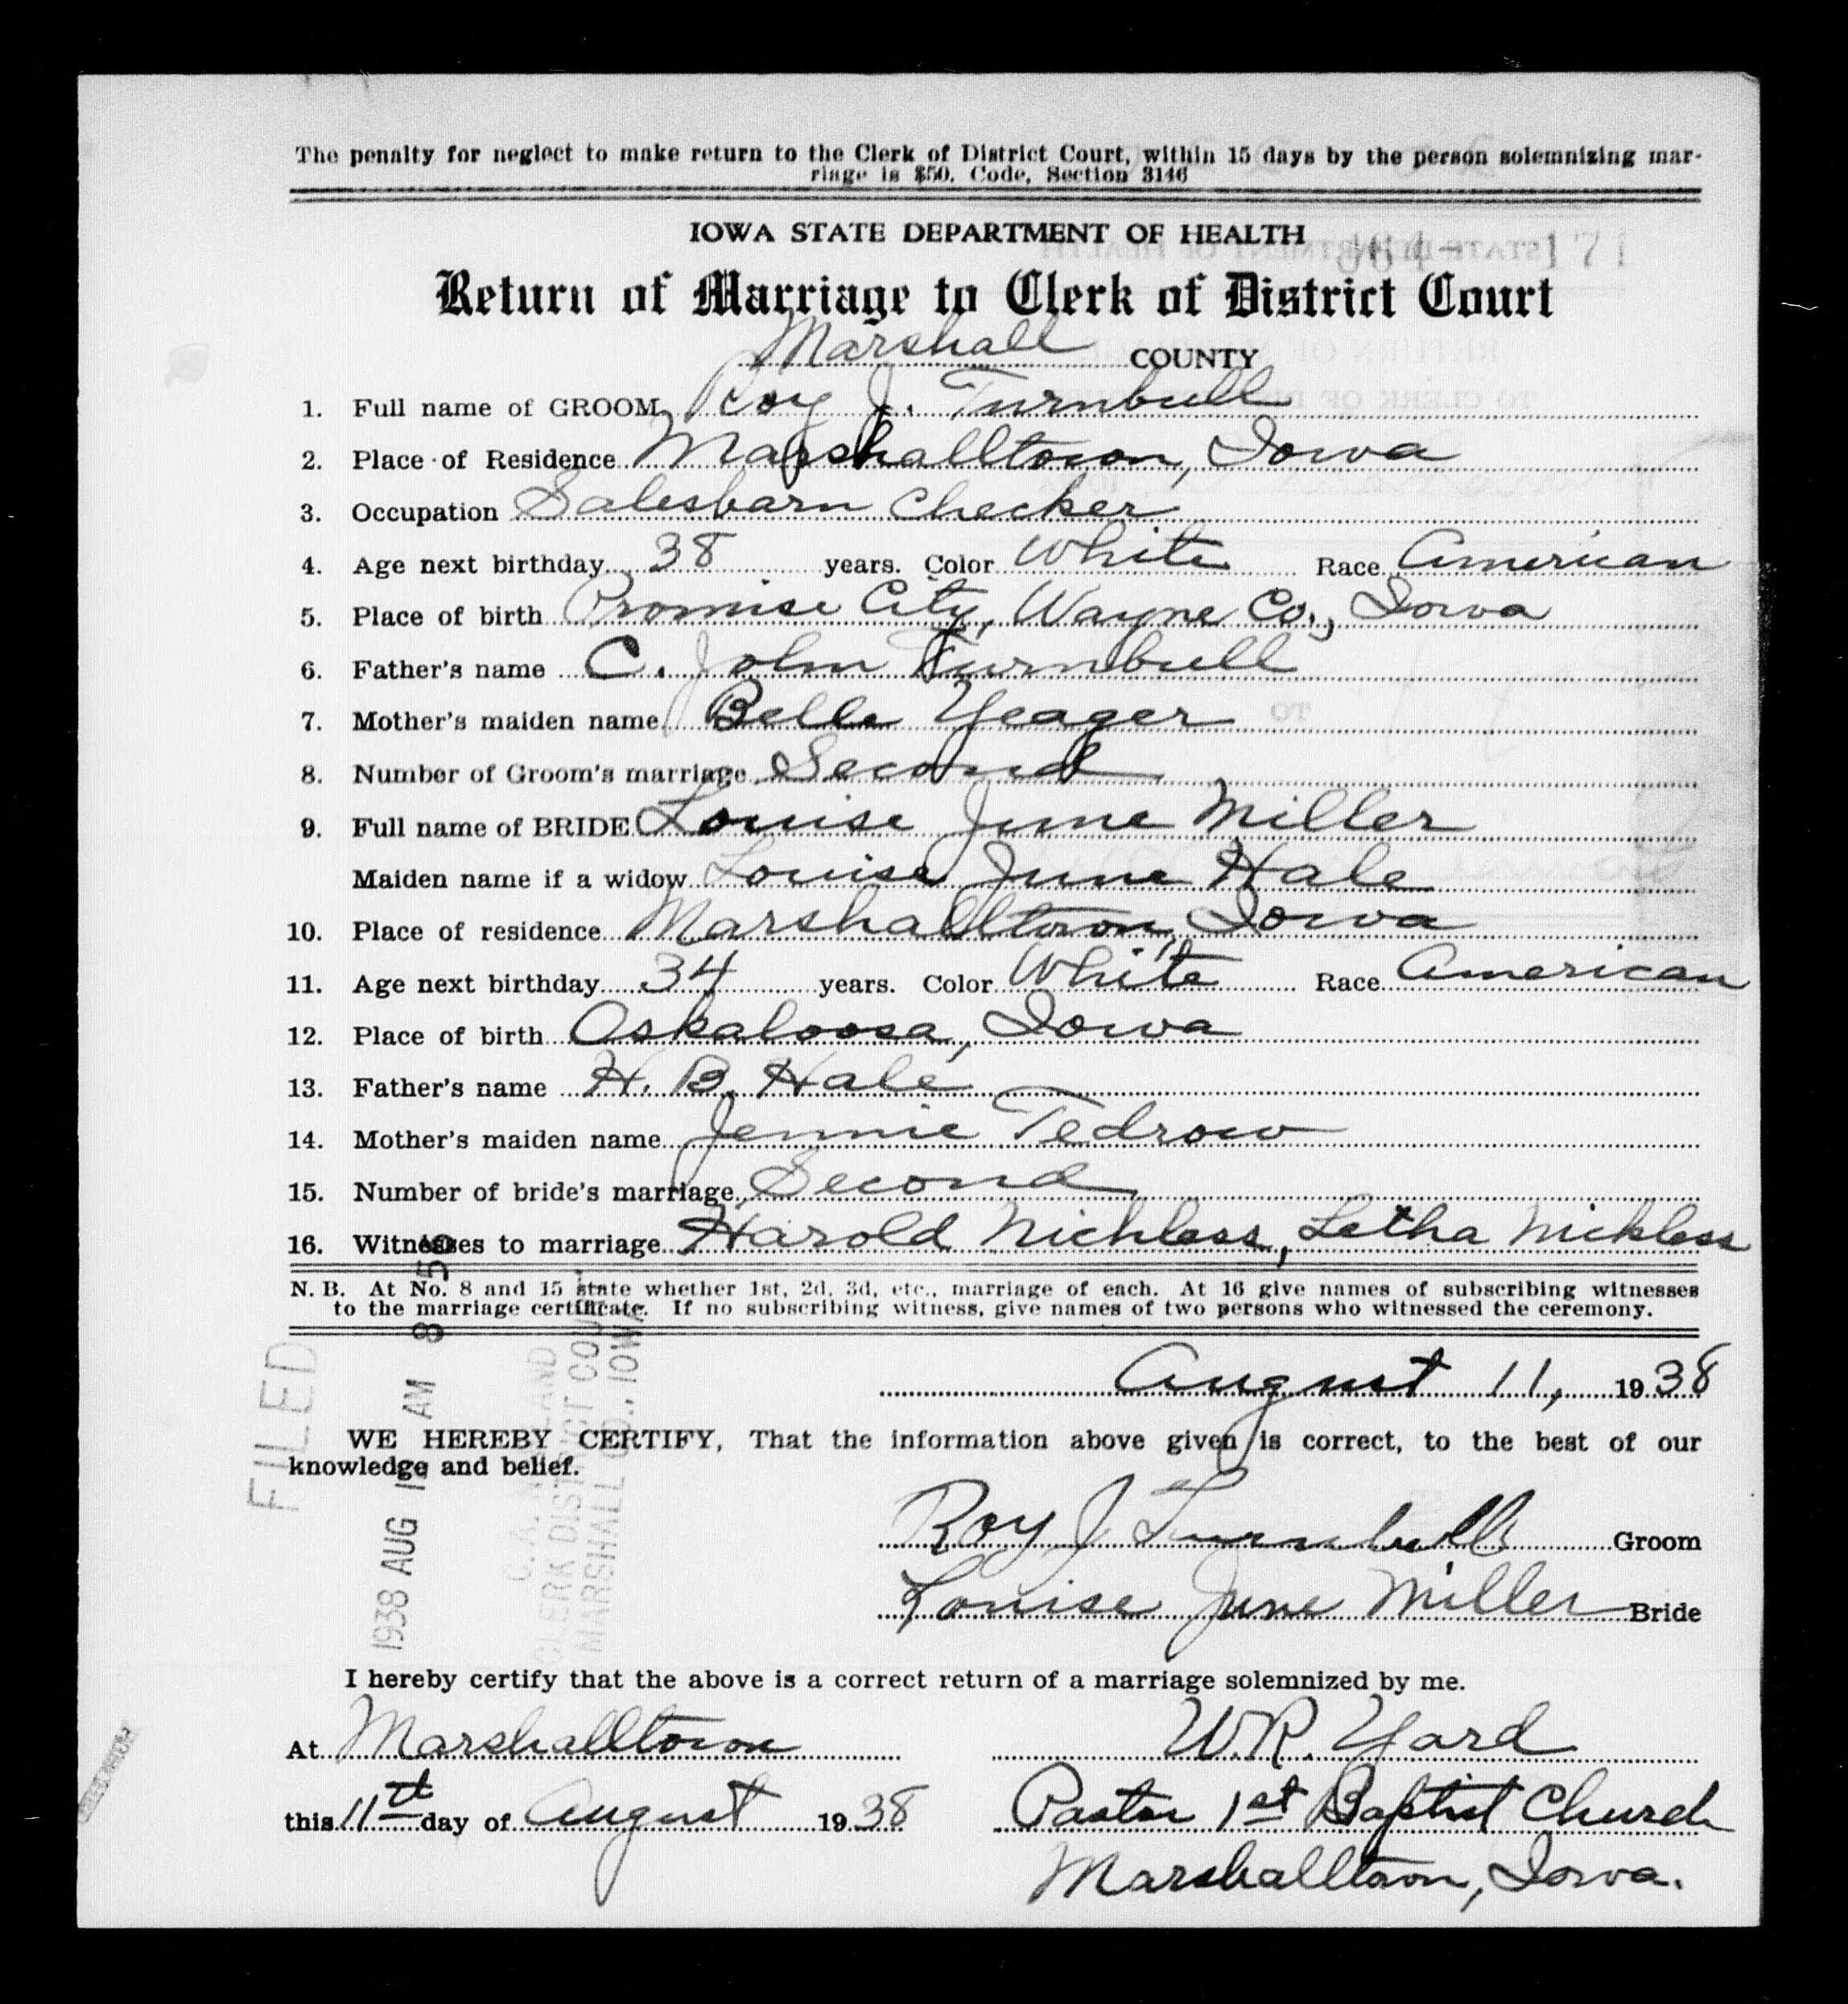 The penalty for neglect to make return to the Clerk of District Court, within 15 days by the person solemnizing mar-
riage is $50. Code, Section 3146
IOWA STATE DEPARTMENT OF HEALTH
171
Return of Marriage to Clerk of District Court
Marshall COUNTY
1. Full name of GROOM Roy J. Turnbull
2. Place of Residence Marshalltown, Iowa
3. Occupation Salesbarn Checker
4. Age next birthday 38 years. Color White Race American
5. Place of birth Promise City, Wayne Co., Iowa
6. Father's name C. John Turnbull
7. Mother's maiden name Belle Yeager
8. Number of Groom's marriage Second
9. Full name of BRIDE Louise June Miller
Maiden name if a widow Louise June Hale
10. Place of residence Marshalltown, Iowa
11. Age next birthday 34 years. Color White Race American
12. Place of birth Oskaloosa, Iowa
13. Father's name H. B. Hale
14. Mother's maiden name Jennie Tedrow
15. Number of bride's marriage Second
16. Witnesses to marriage Harold Nickless, Letha Nickless
N. B. At No. 8 and 15 state whether 1st, 2d, 3d, etc., marriage of each. At 16 give names of subscribing witnesses
to the marriage certificate. If no subscribing witness, give names of two persons who witnessed the ceremony.
August 11, 1938
WE HEREBY CERTIFY, That the information above given is correct, to the best of our
knowledge and belief.
Roy J Turnbull Groom
Louise June Miller Bride
FILED
1938 AUG AM 8 50
CLERK DISTRICT COURT
MARSHALL CO., IOWA
I hereby certify that the above is a correct return of a marriage solemnized by me.
At Marshalltown W. R. Yard
this 11th day of August 1938 Pastor 1st Baptist Church
Marshalltown, Iowa.